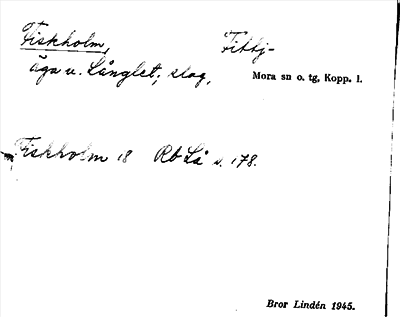 Fiskholm, Fittj-
äga u. Långlet; slog,
Mora sn o. tg, Kopp. l.
Fiskholm 18 Rb Lå s. 178.
Bror Lindén 1945.